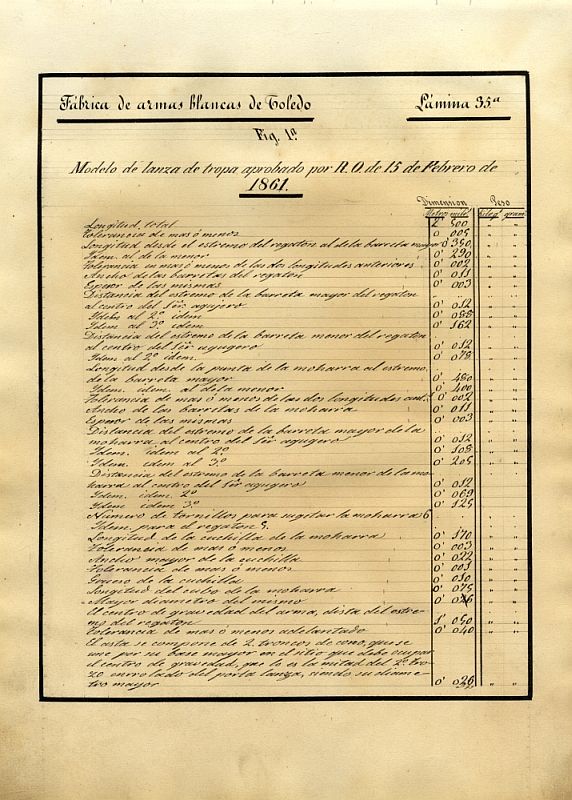 Fábrica de armas blancas de Toledo Lámina 35ª
Fig. 1ª
Modelo de lanza de tropa aprobado por R. O. de 15 de Febrero de
1861.
Dimension Peso
Metros milm Kilog. gram.
Longitud total 2' 500 " "
Tolerancia de mas ó menos 0' 005 " "
Longitud desde el estremo del regaton al de la barreta mayor 0' 350 " "
Idem al de la menor 0' 290 " "
Tolerancia en mas ó menos de las dos longitudes anteriores 0' 002 " "
Ancho de las barretas del regaton 0' 011 " "
Espesor de las mismas 0' 003 " "
Distancia del estremo de la barreta mayor del regaton
al centro del 1er agujero 0' 012 " "
Idem al 2º idem 0' 088 " "
Idem al 3º idem 0' 162 " "
Distancia del estremo de la barreta menor del regaton
al centro del 1er agugero 0' 012 " "
Idem al 2º idem 0' 078 " "
Longitud desde la punta de la moharra al estremo
de la barreta mayor 0' 480 " "
Idem. idem. al de la menor 0' 400 " "
Tolerancia de mas ó menos de las dos longitudes 0' 002 " "
Ancho de las barretas de la moharra 0' 011 " "
Espesor de las mismas 0' 003 " "
Distancia del estremo de la barreta mayor de la
moharra al centro del 1er agugero 0' 012 " "
Idem. idem al 2º 0' 108 " "
Idem. idem al 3º 0' 205 " "
Distancia del estremo de la barreta menor de la mo-
harra al centro del 1er agugero 0' 012 " "
Idem idem. 2º 0' 069 " "
Idem idem 3º 0' 125 " "
Número de tornillos para sugetar la moharra 6
Idem. para el regaton 5.
Longitud de la cuchilla de la moharra 0' 170 " "
Tolerancia de mas ó menos 0' 003 " "
Ancho mayor de la cuchilla 0' 022 " "
Tolerancia de mas ó menos 0' 001 " "
Grueso de la cuchilla 0' 010 " "
Longitud del cubo de la moharra 0' 075 " "
Mayor diametro del mismo 0' " "
El centro de gravedad del arma, dista del estre-
mo del regaton 1' 050 " "
Tolerancia de mas ó menos adelantado 0' 040 " "
El asta se compone de 2 troncos de cono, que se
une por su base mayor en el sitio que debe ocupar
el centro de gravedad, que lo es la mitad del 2º tro-
zo enrollado del porta lanza, siendo su diame-
tro mayor 0' 026 " "